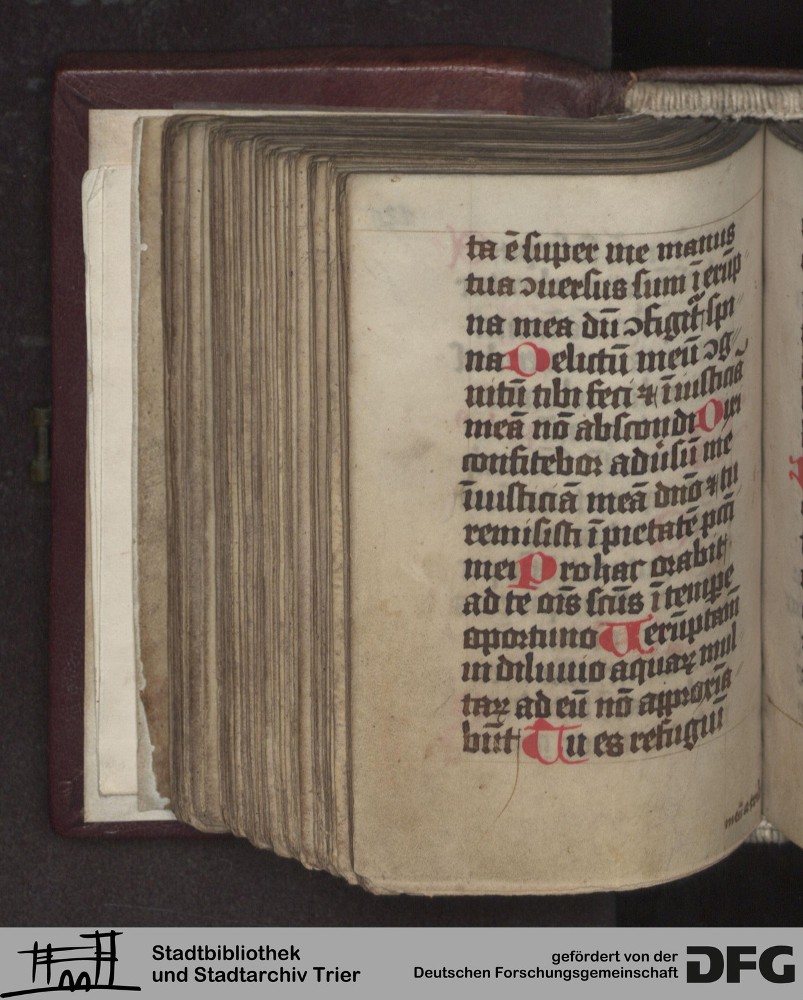 ta ē super me manus
tua ↄuersus sum ī erūp
na mea dū ↄfigit̉ spi
na Delictū meū ↄg
nitū tibi feci ⁊ īiusticiā
meā nō abscondi Dixi
confitebor adusū me
īiusticiā meā dn̄o ⁊ tu
remisisti īpietatē pcc̄i
mei Pro hac orabit
ad te om̄s sc̄us ī tempe
oportuno Uerūptam̄
in diluuio aquaꝝ mul
taꝝ ad eū nō approxīa
būt Tu es refugiū
Stadtbibliothek
und Stadtarchiv Trier
gefördert von der
Deutschen Forschungsgemeinschaft
DFG